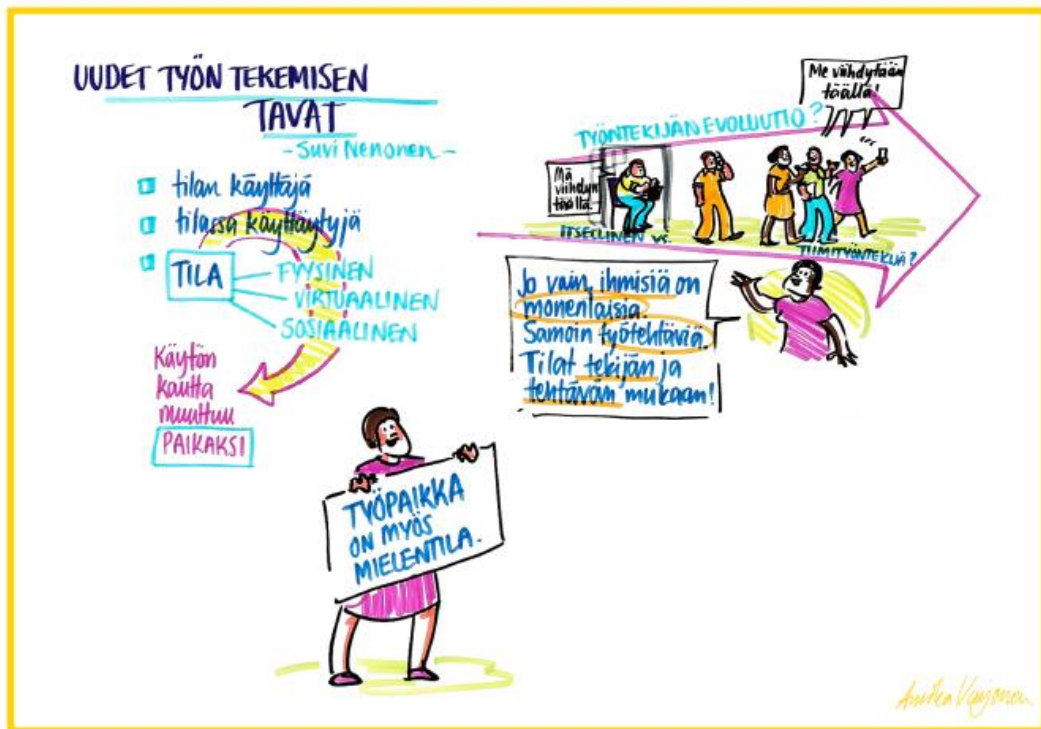 UUDET TYÖN TEKEMISEN
TAVAT
- Suvi Nenonen -
tilan käyttäjä
tilassa käyttäytyjä
TILA
FYYSINEN
VIRTUAALINEN
SOSIAALINEN
Käytön
kautta
muuttuu
PAIKAKSI
TYÖPAIKKA
ON MYÖS
MIELENTILA.
Me viihdytään
täällä!
TYÖNTEKIJÄN EVOLUUTIO?
Mä
viihdyn
täällä.
ITSELLINEN vs.
TIIMITYÖNTEKIJÄ?
Jo vain, ihmisiä on
monenlaisia.
Samoin työtehtäviä.
Tilat tekijän ja
tehtävän mukaan!